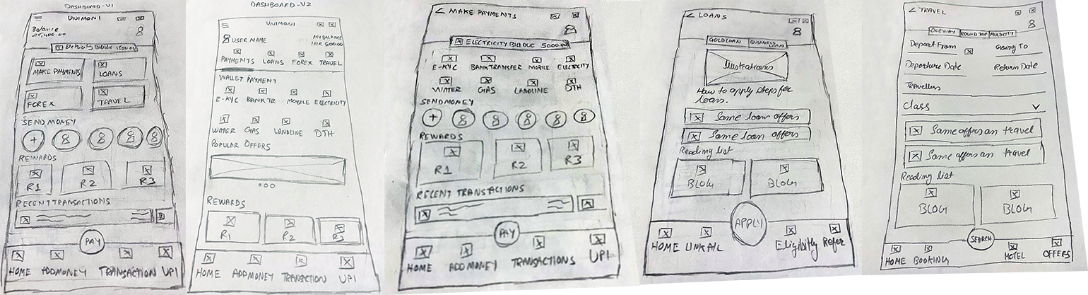 DASHBOARD-V1
UNIMONI
Balance
MAKE PAYMENTS
LOANS
FOREX
TRAVEL
SEND MONEY
REWARDS
R1
R2
R3
RECENT TRANSACTIONS
PAY
HOME
ADD MONEY
TRANSACTION
UPI
DASHBOARD-V2
UNIMONI
USER NAME
PAYMENTS
LOANS
FOREX
TRAVEL
WALLET PAYMENT
E-KYC
BANK TR
MOBILE
ELECTRICITY
WATER
GAS
LANDLINE
DTH
POPULAR OFFERS
REWARDS
R1
R2
R3
HOME
ADD MONEY
TRANSACTION
UPI
MAKE PAYMENTS
E-KYC
BANK TRANSFER
MOBILE
ELECTRICITY
WATER
GAS
LANDLINE
DTH
SEND MONEY
REWARDS
R1
R2
R3
RECENT TRANSACTIONS
PAY
HOME
ADD MONEY
TRANSACTIONS
UPI
LOANS
Illustrations
How to apply steps for
loans.
Some loan offers
Some loan offers
Reading list
BLOG
BLOG
APPLY
HOME
Eligibility
Refer
TRAVEL
Depart From
Going To
Departure Date
Return Date
Travellers
Class
Some offers on travel
Some offers on travel
Reading list
BLOG
BLOG
SEARCH
HOME
BOOKING
HOTEL
OFFERS